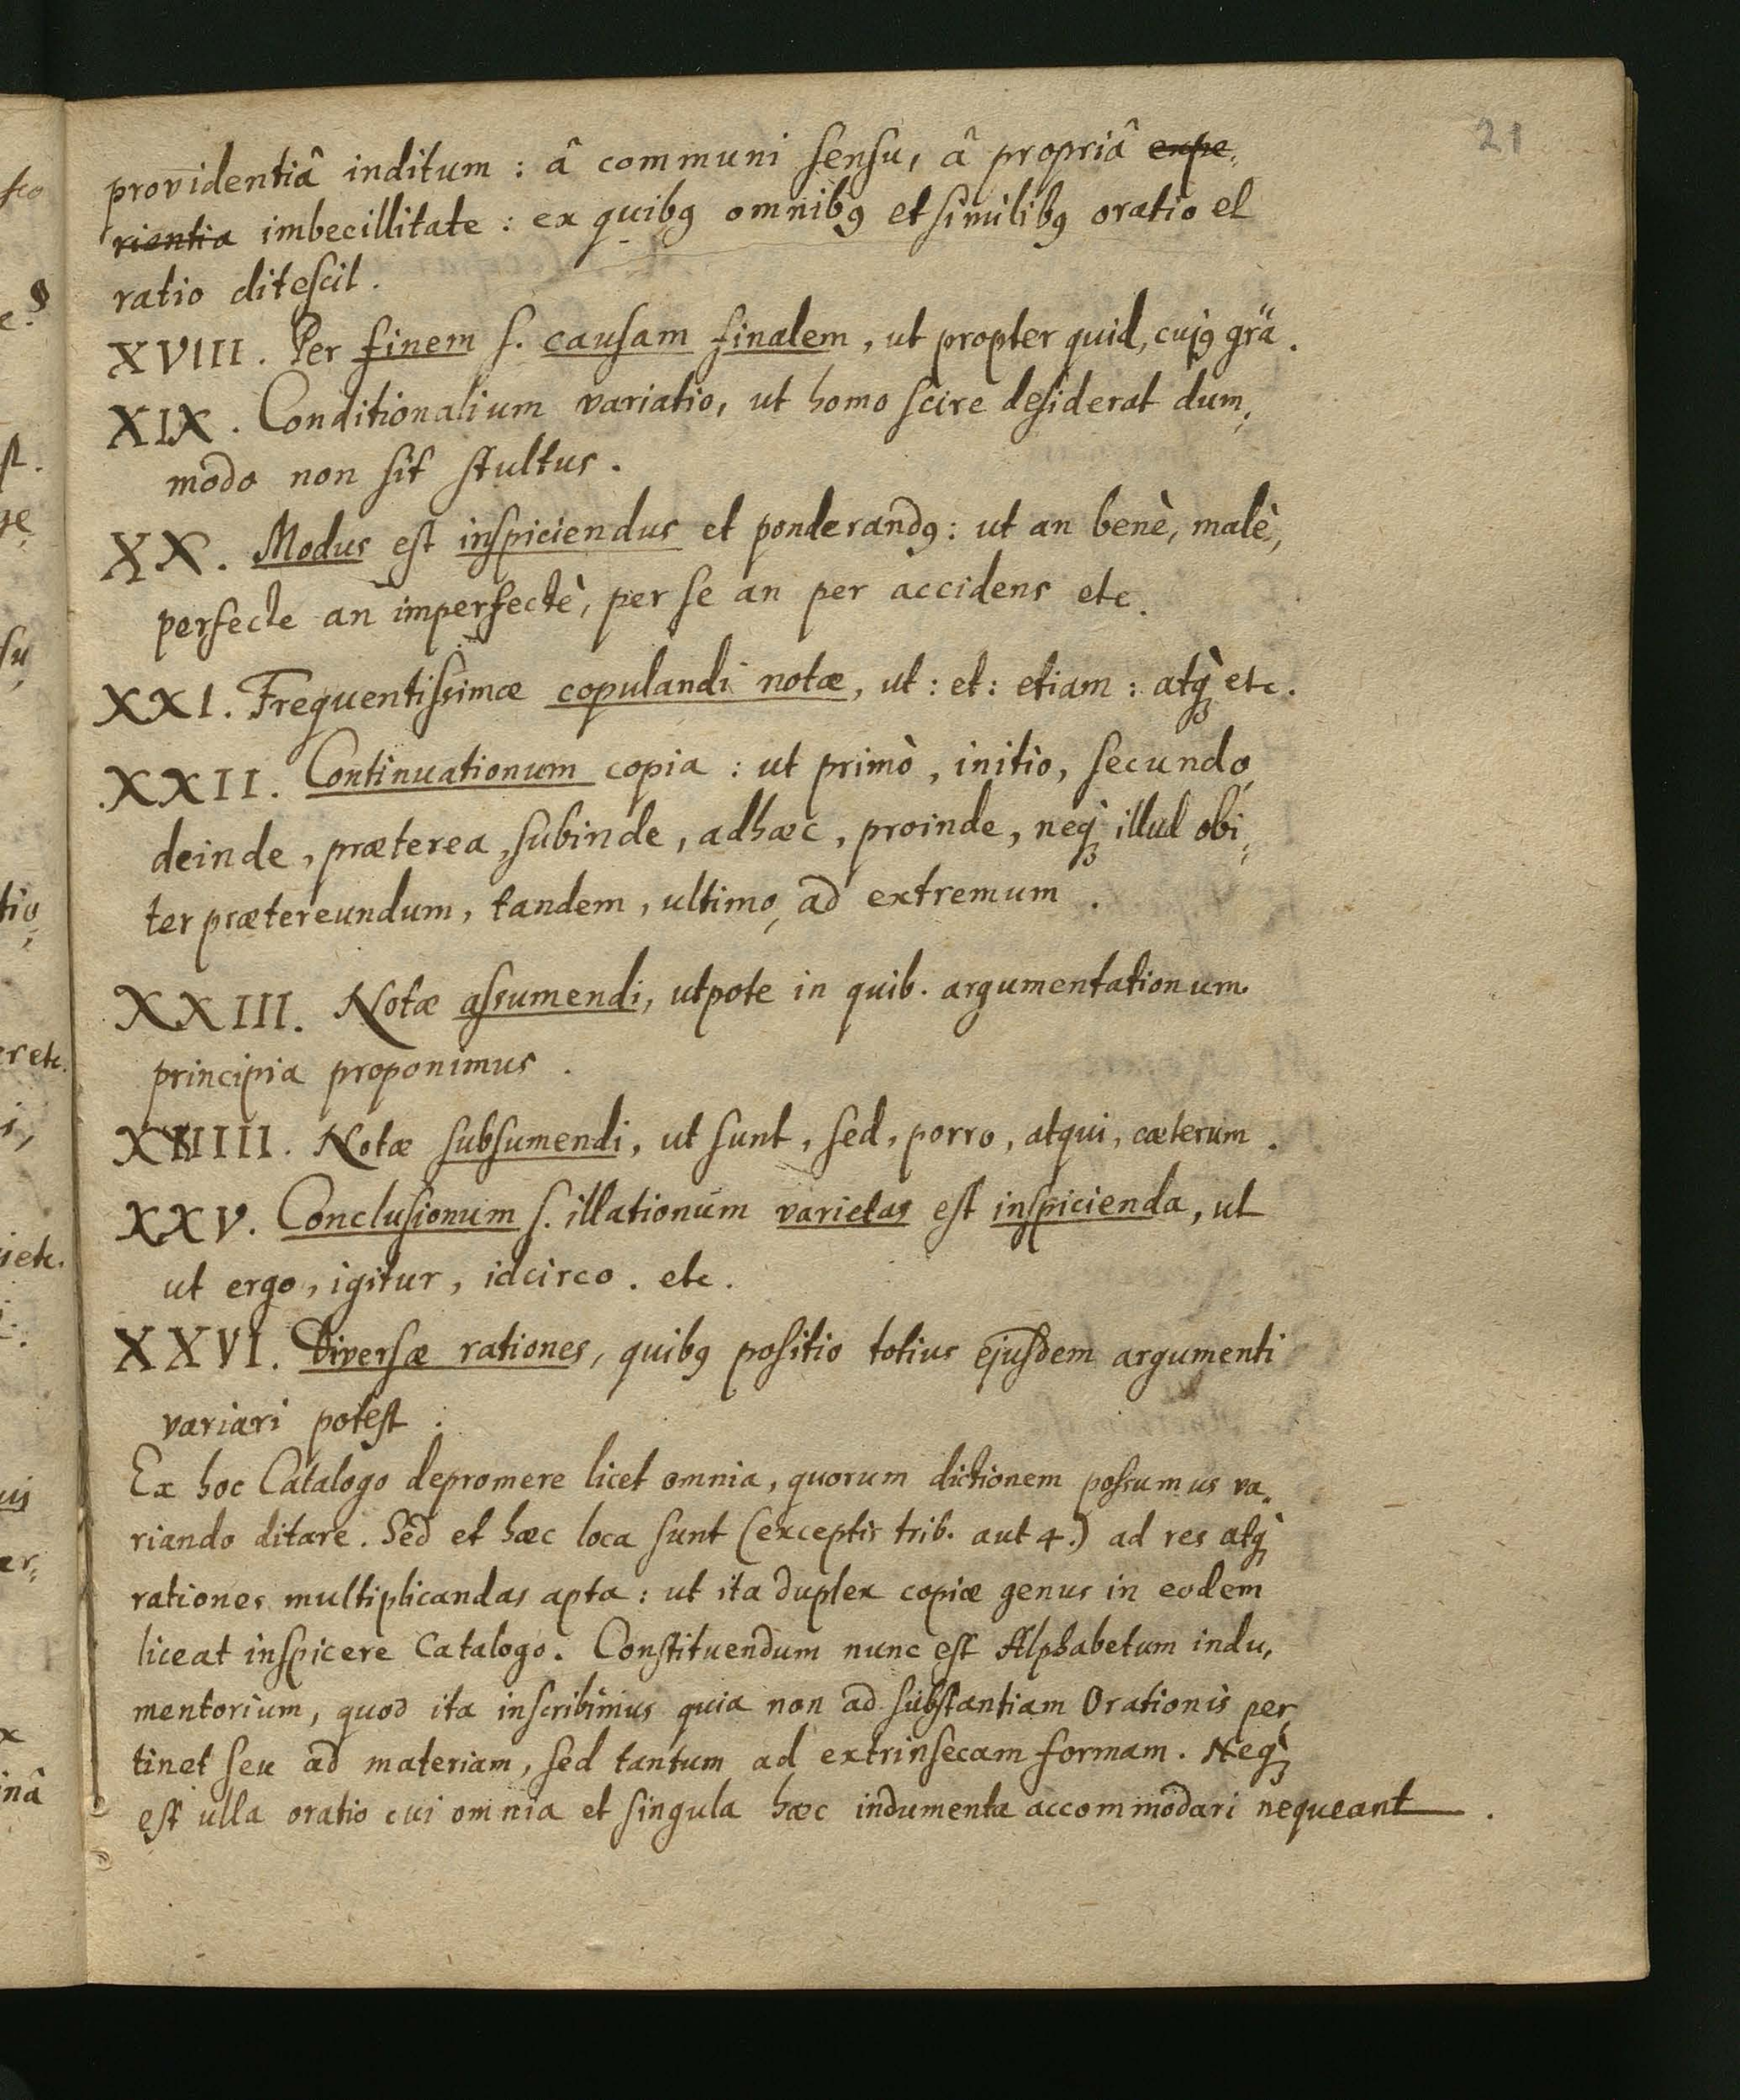 21
providentiâ inditum : â communi sensu, â propriâ expe,
rientia imbecillitate : ex quibꝰ omnibꝰ et similibꝰ oratio et
ratio ditescit.
XVIII. Per finem s. causam finalem, ut propter quid, cujꝰ grã.
XIX. Conditionalium variatio, ut homo scire desiderat dum,
modo non sit stultus.
XX. Modus est inspiciendus et ponderandꝰ: ut an benè, malè,
perfecte an imperfectè, per se an per accidens etc.
XXI. Frequentissimæ copulandi notæ, ut : et : etiam : atq̀ꝫ etc.
XXII. Continuationum copia : ut primò, initio, secundo,
deinde, præterea, subinde, adhæc, proinde, neq̀ꝫ illud obi,
ter prætereundum, tandem, ultimo, ad extremum.
XXIII. Notæ assumendi, utpote in quib. argumentationum
principia proponimus.
XXIIII. Notæ subsumendi, ut sunt, sed, porro, atqui, cæterum.
XXV. Conclusionum s. illationum varietas est inspicienda, ut
ut ergo, igitur, idcirco. etc.
XXVI. Diversæ rationes, quibꝰ positio totius ejusdem argumenti
variari potest.
Ex hoc Catalogo depromere licet omnia, quorum dictionem possumus va,
riando ditare. Sed et hæc loca sunt (exceptis trib. aut 4.) ad res atq̀ꝫ
rationes multiplicandas apta : ut ita duplex copiæ genus in eodem
liceat inspicere Catalogo. Constituendum nunc est Alphabetum indu,
mentorium, quod ita inscribimus quia non ad substantiam Orationis per,
tinet seu ad materiam, sed tantum ad extrinsecam formam. Neq̀ꝫ
est ulla oratio cui omnia et singula hæc indumenta accommodari nequeant.